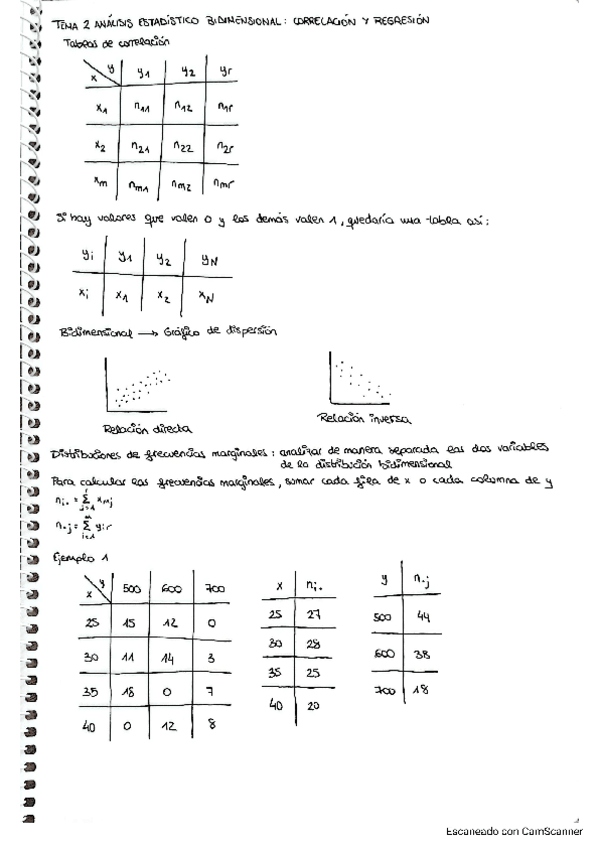 TEMA 2 ANÁLISIS ESTADÍSTICO BIDIMENSIONAL: CORRELACIÓN Y REGRESIÓN
Tablas de correlación
x y y1 y2 yr
x1 n11 n12 n1r
x2 n21 n22 n2r
xm nm1 nm2 nmr
Si hay valores que valen 0 y los demás valen 1, quedaría una tabla así:
yi y1 y2 yN
xi x1 x2 xN
Bidimensional → Gráfico de dispersión
Relación directa
Relación inversa
Distribuciones de frecuencias marginales: analizar de manera separada las dos variables
de la distribución bidimensional
Para calcular las frecuencias marginales, sumar cada fila de x o cada columna de y
ni. = Σ j=1 r xmj
n.j = Σ i=1 m yir
Ejemplo 1
x y 500 600 700
25 15 12 0
30 11 14 3
35 18 0 7
40 0 12 8
x ni.
25 27
30 28
35 25
40 20
y n.j
500 44
600 38
700 18
Escaneado con CamScanner